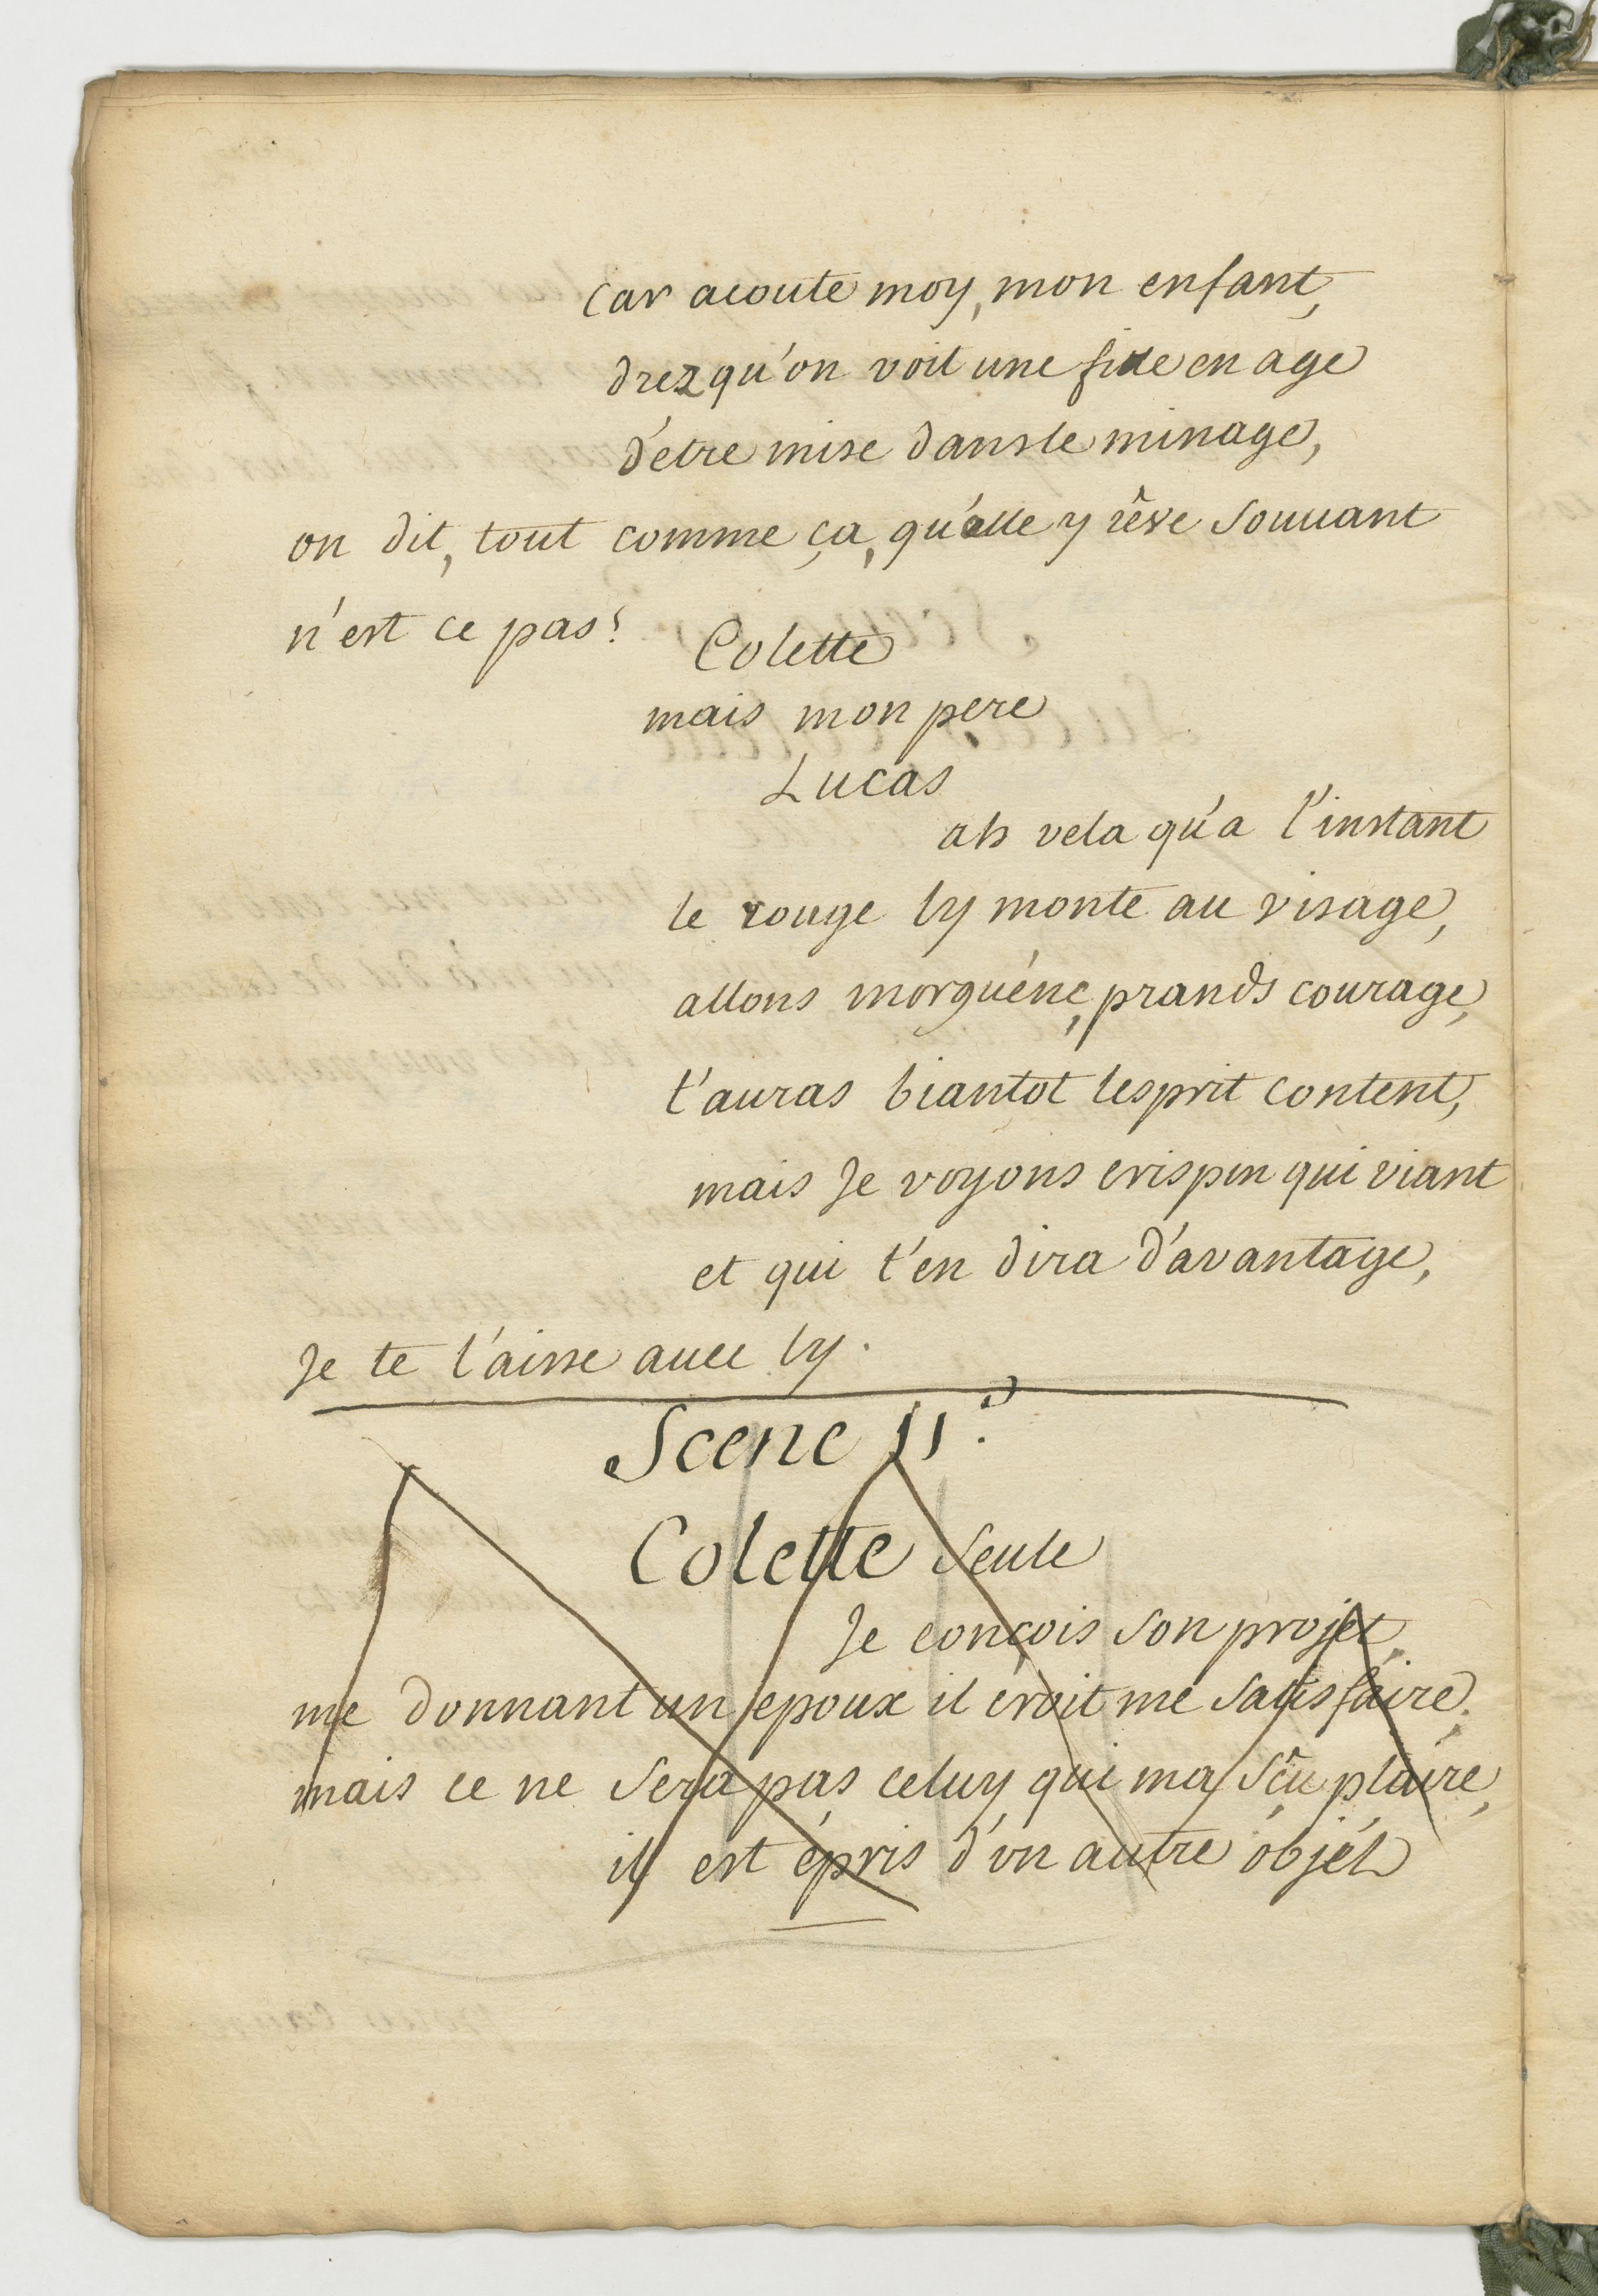 car acoute moy, mon enfant,
drez qu'on voit une fille en age
d'etre mise dans le minage,
on dit, tout comme ça, qu'elle y rêve souuant
n'est ce pas?
Colette
mais mon pere
Lucas
ah vela qu'a l'instant
le rouge ly monte au visage,
allons morguéne, prands courage,
t'auras biantot lesprit content,
mais Je voyons crispin qui viant
et qui t'en dira d'avantage,
Je te l'aisse auec ly.
Scene 11.e
Colette seule
Je conçois son projet,
me donnant un epoux il croit me satisfaire.
mais ce ne sera pas celuy qui ma sçû plaire,
il est épris d'un autre objét